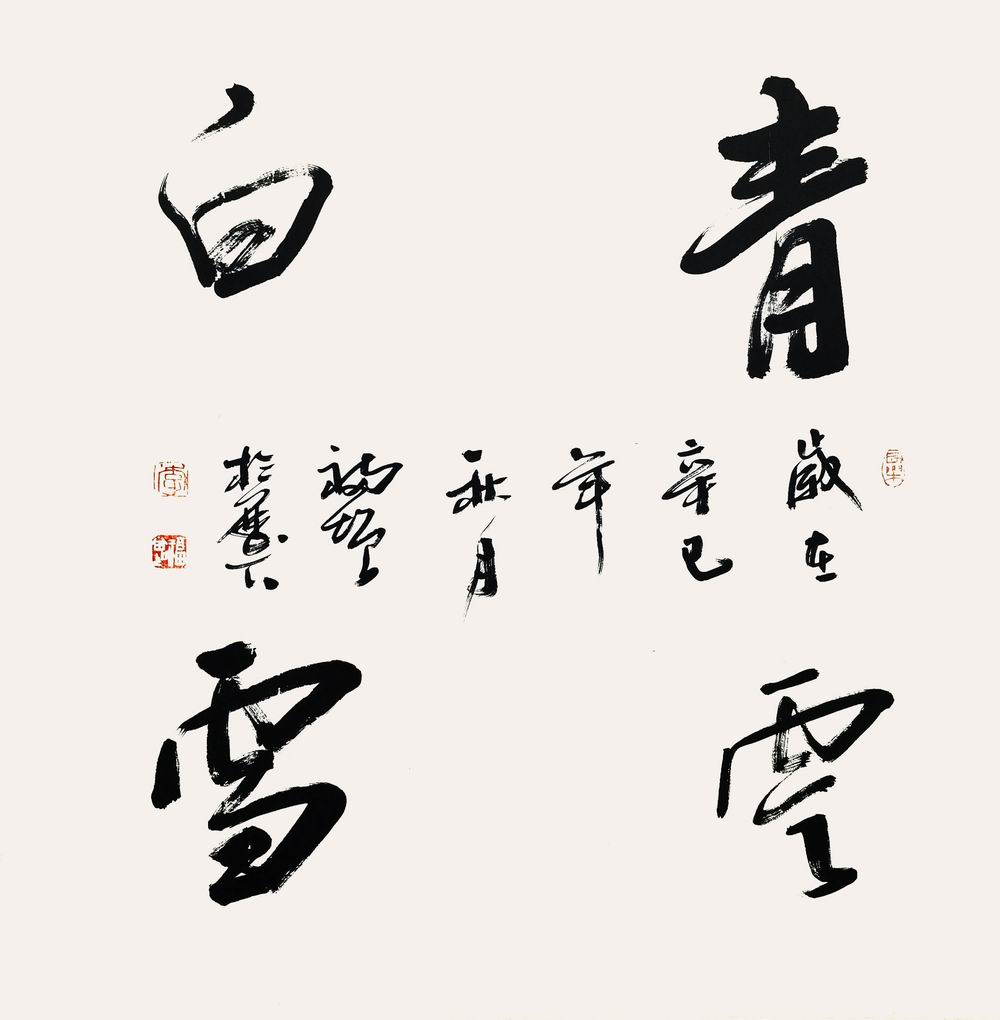 青雲
白雪
歲在
辛巳
年
秋月
福增
於